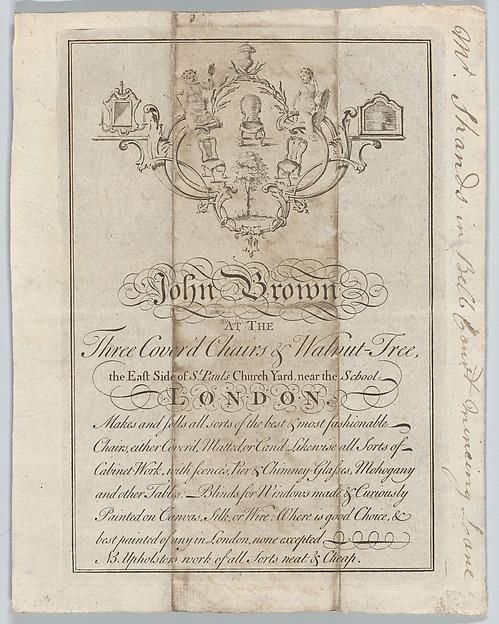 John Brown
AT THE
Three Cover'd Chairs & Walnut-Tree,
the East Side of St. Paul's Church Yard, near the School,
LONDON.
Makes and sells all sorts of the best & most fashionable
Chairs, either Cover'd, Matted, or Can'd. Likewise all Sorts of
Cabinet Work, with sconces, Pier & Chimney-Glasses, Mohogany
and other Tables: Blinds for Windows made & Curiously
Painted on Canvas, Silk, or Wire: Where is good Choice, &
best painted of any in London, none excepted
NB. Upholsters work of all Sorts neat & Cheap.
Mr. Shands in Bell Court Mincing Lane